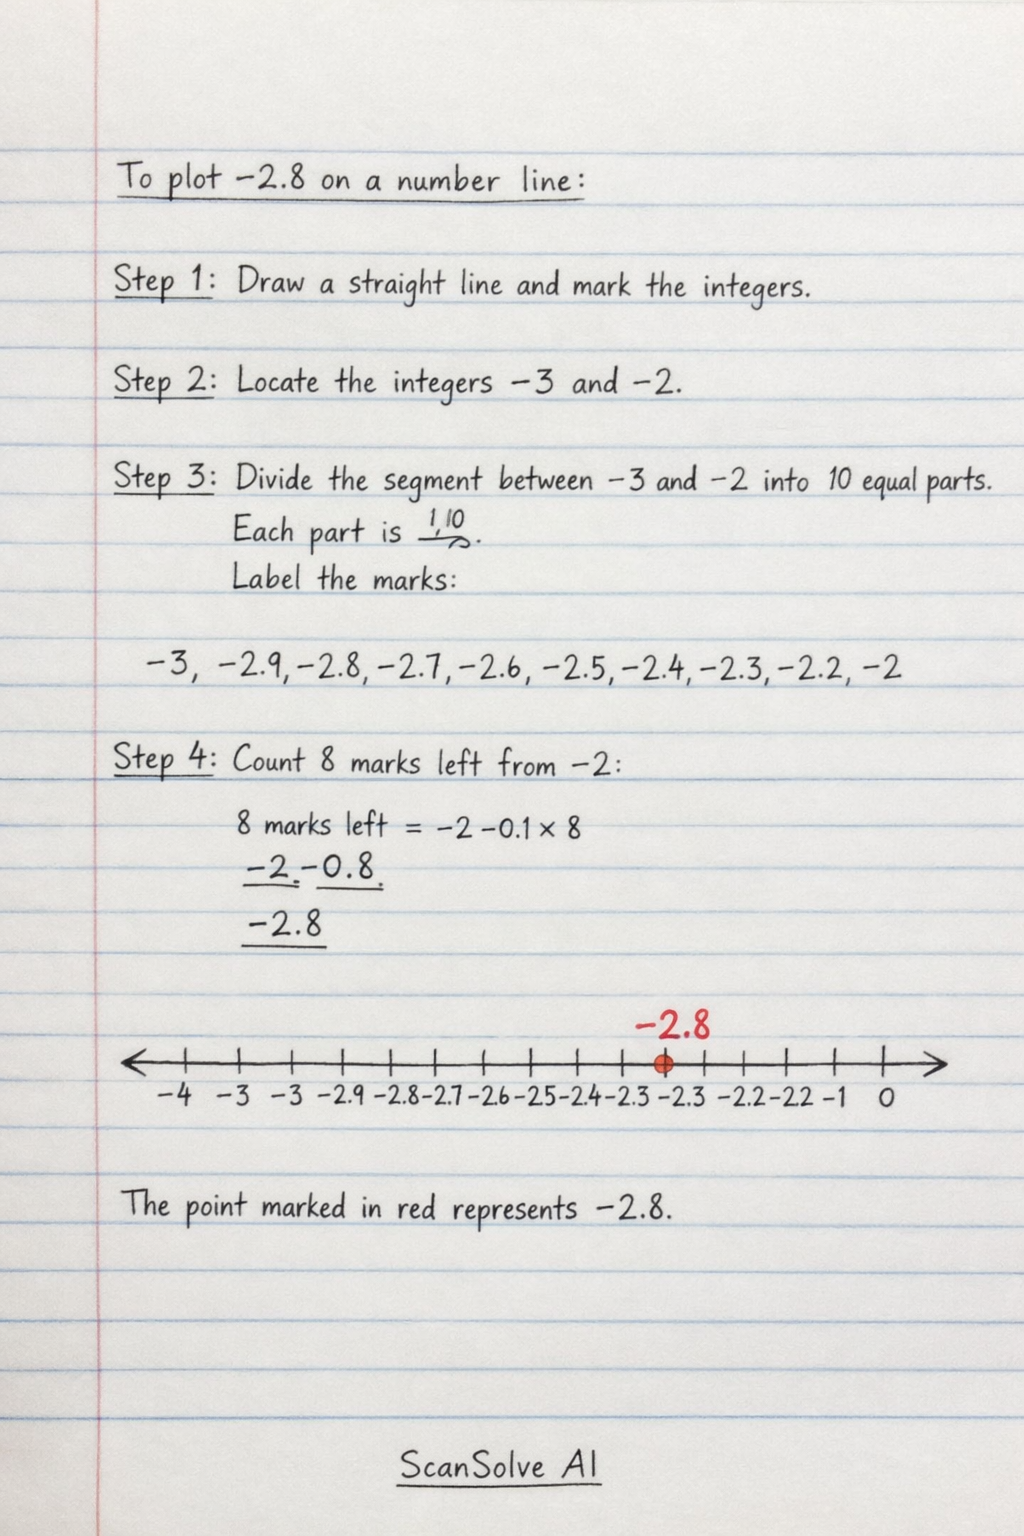 To plot −2.8 on a number line:
Step 1: Draw a straight line and mark the integers.
Step 2: Locate the integers −3 and −2.
Step 3: Divide the segment between −3 and −2 into 10 equal parts.
Each part is 1,10.
Label the marks:
−3, −2.9, −2.8, −2.7, −2.6, −2.5, −2.4, −2.3, −2.2, −2
Step 4: Count 8 marks left from −2:
8 marks left = −2 −0.1 × 8
−2.−0.8.
−2.8
−2.8
−4 −3 −3 −2.9 −2.8 −2.7 −2.6 −2.5 −2.4 −2.3 −2.3 −2.2 −2.2 −1 0
The point marked in red represents −2.8.
ScanSolve AI